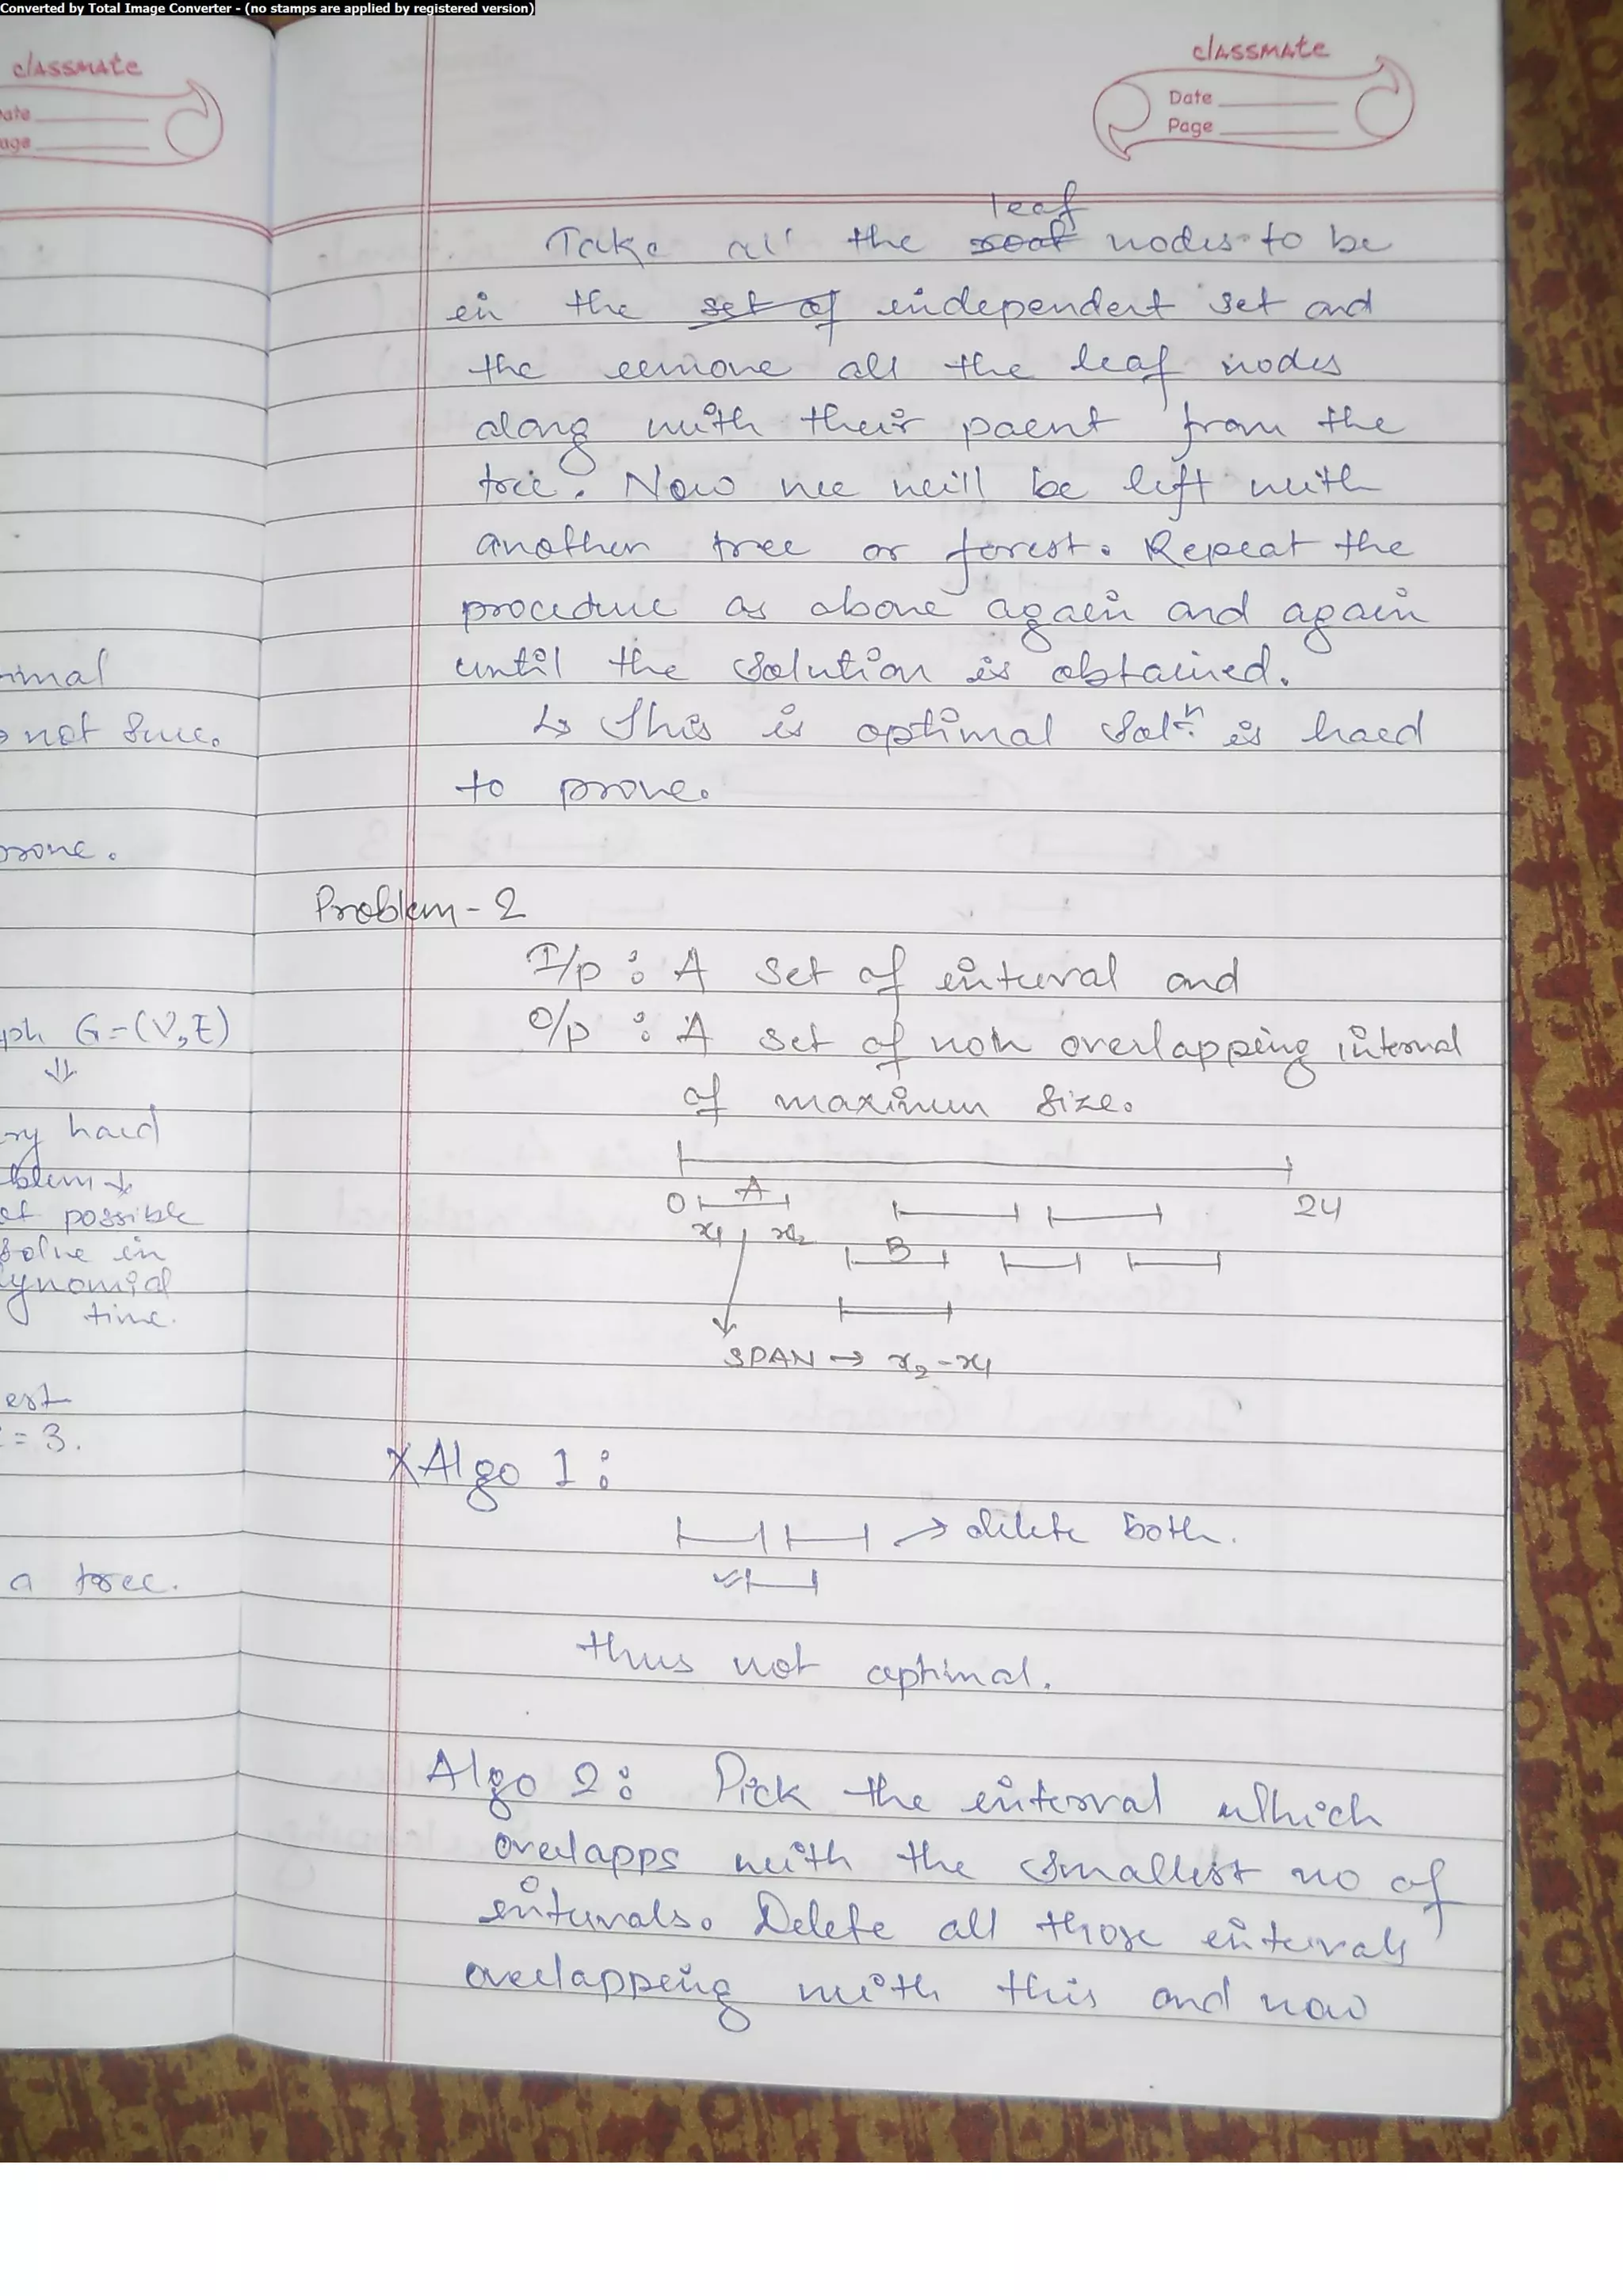 Converted by Total Image Converter - (no stamps are applied by registered version)
classmate
ate
age
imal
not sure.
prove.
G=(V,E)
⇓
ry hard
blem
possible
solve in
lynomial
time.
est
= 3.
a tree.
classmate
Date
Page
leaf
Take all the root nodes to be
in the set of independent set and
the remove all the leaf nodes
along with their paent from the
tree. Now we will be left with
another tree or forest. Repeat the
procedure as above again and again
until the solution is obtained.
↳ This is optimal solⁿ. is hard
to prove.
Problem-2
I/p : A set of interval and
O/p : A set of non overlapping interval
of maximum size.
0 A 24
x1 x2
B
SPAN → x2-x1
X Algo 1:
→ delete both.
thus not optimal.
Algo 2: Pick the interval which
overlapps with the smallest no of
intervals. Delete all those intervals
overlapping with this and now